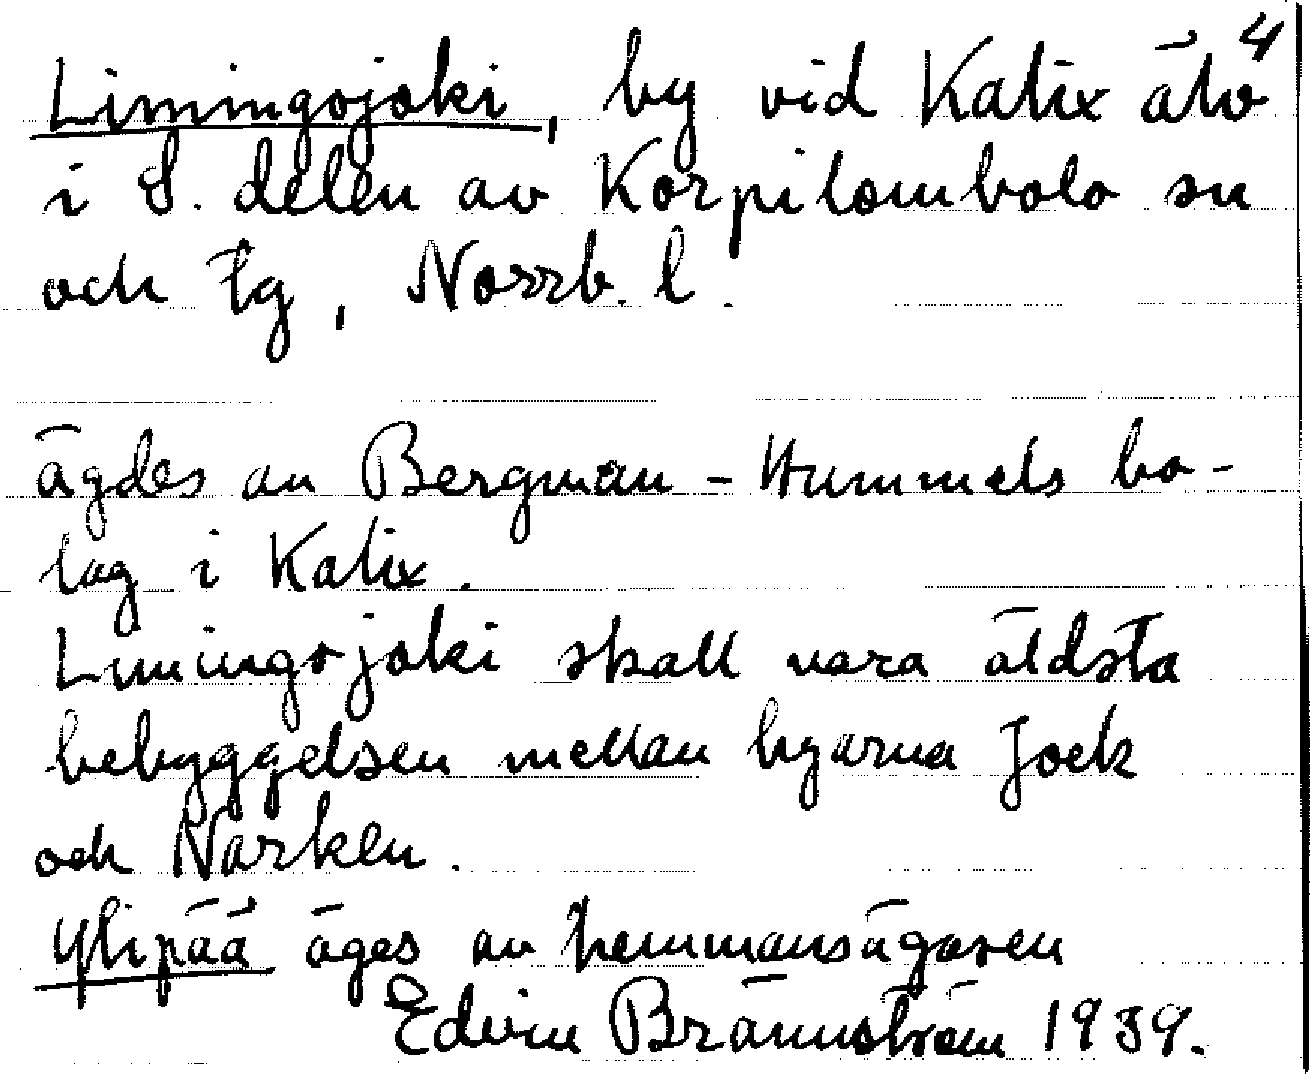 4
Limingojoki, by vid Kalix älv
i S. delen av Korpilombolo sn
och tg, Norrb. l.
ägdes av Bergman - Hummels bo-
lag i Kalix.
Limingojoki skall vara äldsta
bebyggelsen mellan byarna Jock
och Narken.
Ylipää äges av hemmansägaren
Edvin Brännström 1939.